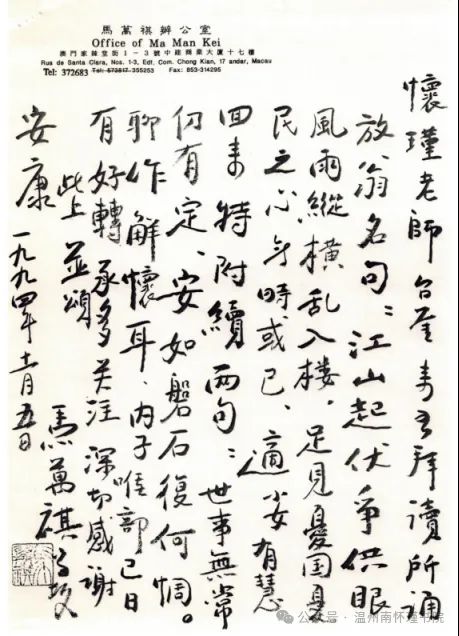 馬萬祺辦公室
Office of Ma Man Kei
澳門家辣堂街1－3號中建商業大廈十七樓
Rua de Santa Clara, Nos. 1-3, Edf. Com. Chong Kian, 17 andar, Macau
Tel: 372683 Tel: 573817 355253 Fax: 853-314295
懷瑾老師台鑒 拜讀所誦
放翁名句：江山起伏争供眼
風雨縱横乱入樓。足見憂国憂
民之心 時或已、適 有慧
回来特附續兩句：世事無常
仍有定、安如磐石復何惆。
聊作解懷耳、内子 部已日
有好轉 承多关注 深切感謝
此上 並頌
安康
馬萬祺
一九九四年十一月五日
公众号 · 温州南怀瑾书院